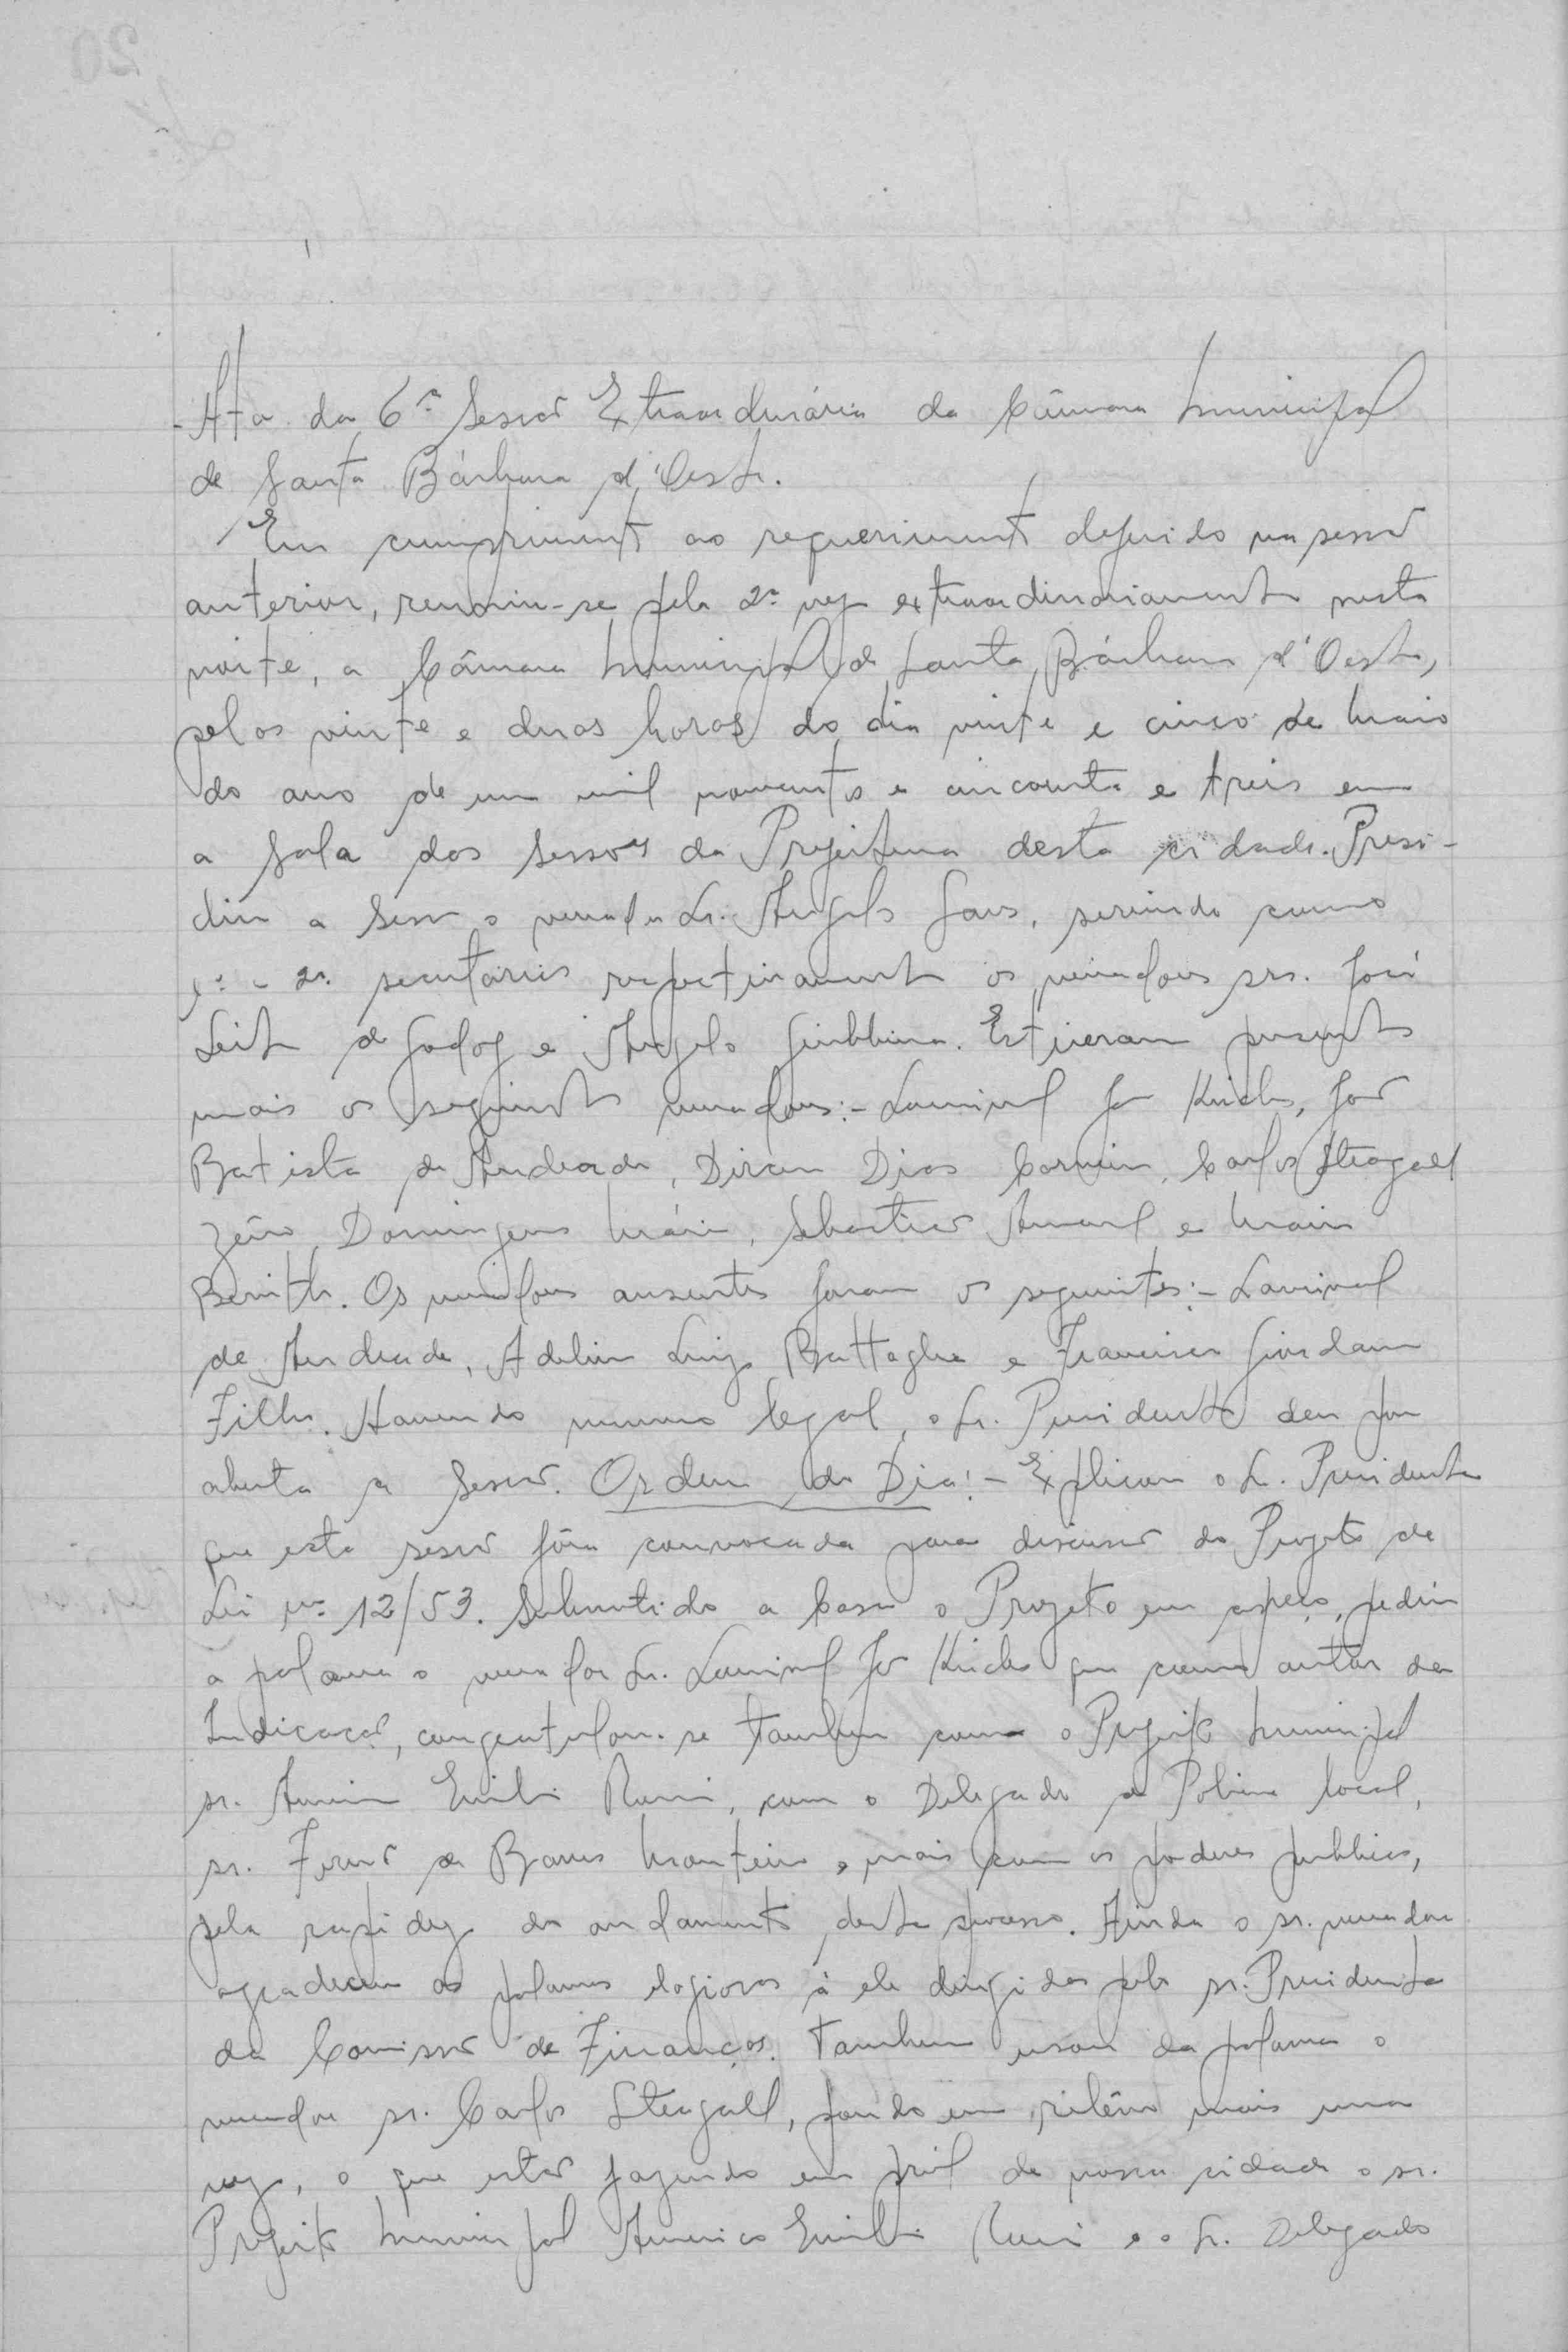 Ata da 6ª Sessão Extraordinária da Câmara Municipal
de Santa Bárbara d'Oeste.
Em cumprimento ao requerimento deferido na sessão
anterior, reuniu-se pela 2ª vez extraordinariamente nesta
noite, a Câmara Municipal de Santa Bárbara d'Oeste,
pelas vinte e duas horas do dia vinte e cinco de Maio
do ano de um mil novecentos e cincoenta e treis em
a sala das sessões da Prefeitura desta cidade. Presi-
diu a Sessão o vereador Sr. Angelo Sans, servindo como
1º e 2º secretários respectivamente os vereadores srs. José
Leite de Godoy e Angelo Giubbina. Estiveram presentes
mais os seguintes vereadores:- Lourival José Kirche, João
Batista de Andrade, Dirceu Dias Carneiro, Carlos Steagall
Zeno Domingues Maia, Sebastião Amaral e Mario
Os vereadores ausentes foram os seguintes:- Lourival
de Andrade, Adelino Luiz Battaglia e Francisco Giordano
Filho. Havendo numero legal, o Sr. Presidente deu por
aberta a Sessão. Ordem do Dia:- Explicou o Sr. Presidente
que esta sessão fôra convocada para discussão do Projeto de
Lei nº 12/53. Submetido a Casa o Projeto em apreço, pediu
a palavra o vereador Sr. Lourival José Kirche que como autor da
Indicação, congratulou-se tambem com o Prefeito Municipal
sr. Americo Emilio Romi, com o Delegado de Policia local,
sr. de Barros Monteiro e mais com os poderes publicos,
pela rapidez do andamento deste processo. Ainda o sr. vereador
agradeceu as palavras elogiosas à ele dirigidas pelo sr. Presidente
da Comissão de Finanças. Tambem usou da palavra o
vereador sr. Carlos Steagall, pondo em relêvo mais uma
vez, o que estão fazendo em pról de nossa cidade o sr.
Prefeito Municipal Americo Emilio Romi e o Sr. Delegado